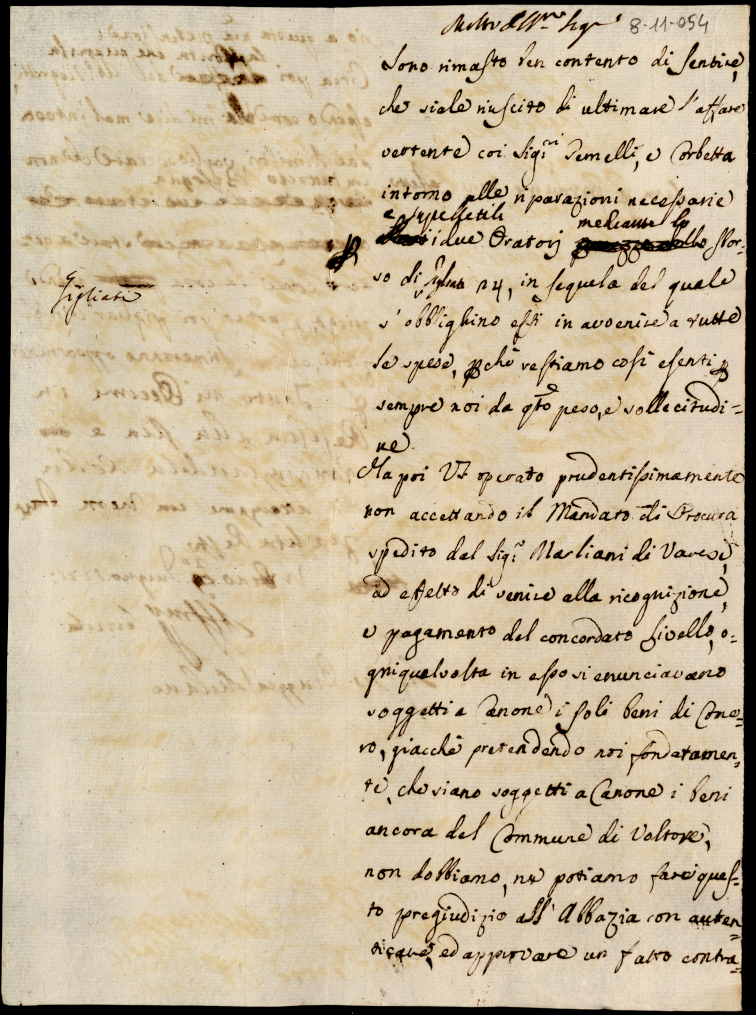 Molto Ill.re Sig.re 8-11-054
Sono rimasto ben contento di sentire,
che siale riuscito di ultimare l'affare
vertente coi Sig.ri Gemelli, e Corbetta
intorno alle riparazioni necessarie
e supelletili mediante lo
i due Oratorj sbor-
so di gigliati 24, in sequela del quale
Gigliati
s'obblighino essi in avvenire a tutte
le spese, pchè restiamo così esenti p
sempre noi da qto peso, e sollecitudi-
ne.
Ha poi VS operato prudentissimamente
non accettando il Mandato di Procura
spedito dal Sig.r Marliani di Varese,
ad effetto di venire alla ricognizione,
e pagamento del concordato Livello, o-
gniqualvolta in esso si enunciavano
soggetti a Canone i soli beni di Come-
ro, giacchè pretendendo noi fondatamen-
te, che siano soggetti a Canone i beni
ancora del Commune di Voltore,
non dobbiamo, ne potiamo fare ques-
to pregiudizio all'Abbazia con auten-
ticare, ed approvare un fatto contra-